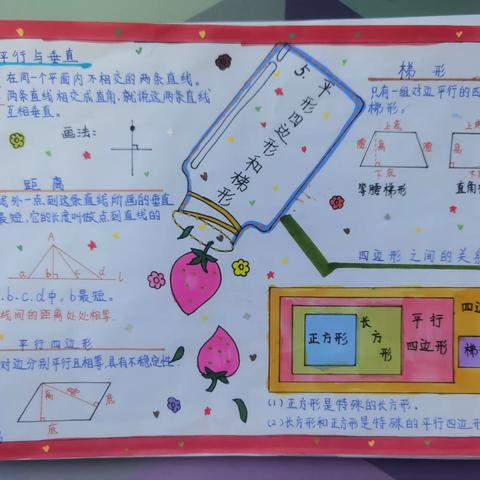 平行与垂直
在同一个平面内不相交的两条直线。
两条直线相交成直角,就说这两条直线
互相垂直。
画法:
距离
线外一点到这条直线所画的垂直
最短,它的长度叫做点到直线的
A
a b c d l
a.b.c.d中,b最短。
线间的距离处处相等.
平行四边形
对边分别平行且相等,具有不稳定性.
高
高
底
底
5.平行四边形和梯形
梯形
只有一组对边平行的四
梯形。
上底
腰
高
腰
下底
等腰梯形
上
直角
四边形之间的关系
正方形
长方形
平行
四边形
四边
梯
(1)正方形是特殊的长方形。
(2)长方形和正方形是特殊的平行四边形